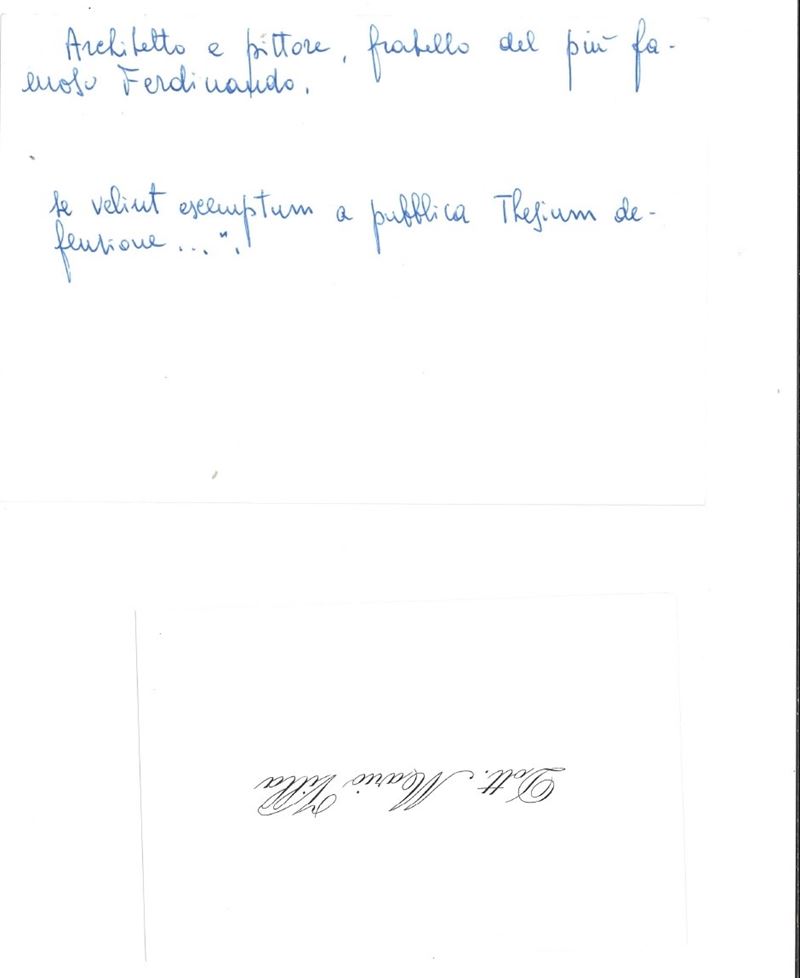 Architetto e pittore, fratello del più fa-
moso Ferdinando.
se velint exemptum a pubblica Thesium de-
fensione ...".
Dott. Mario Villa